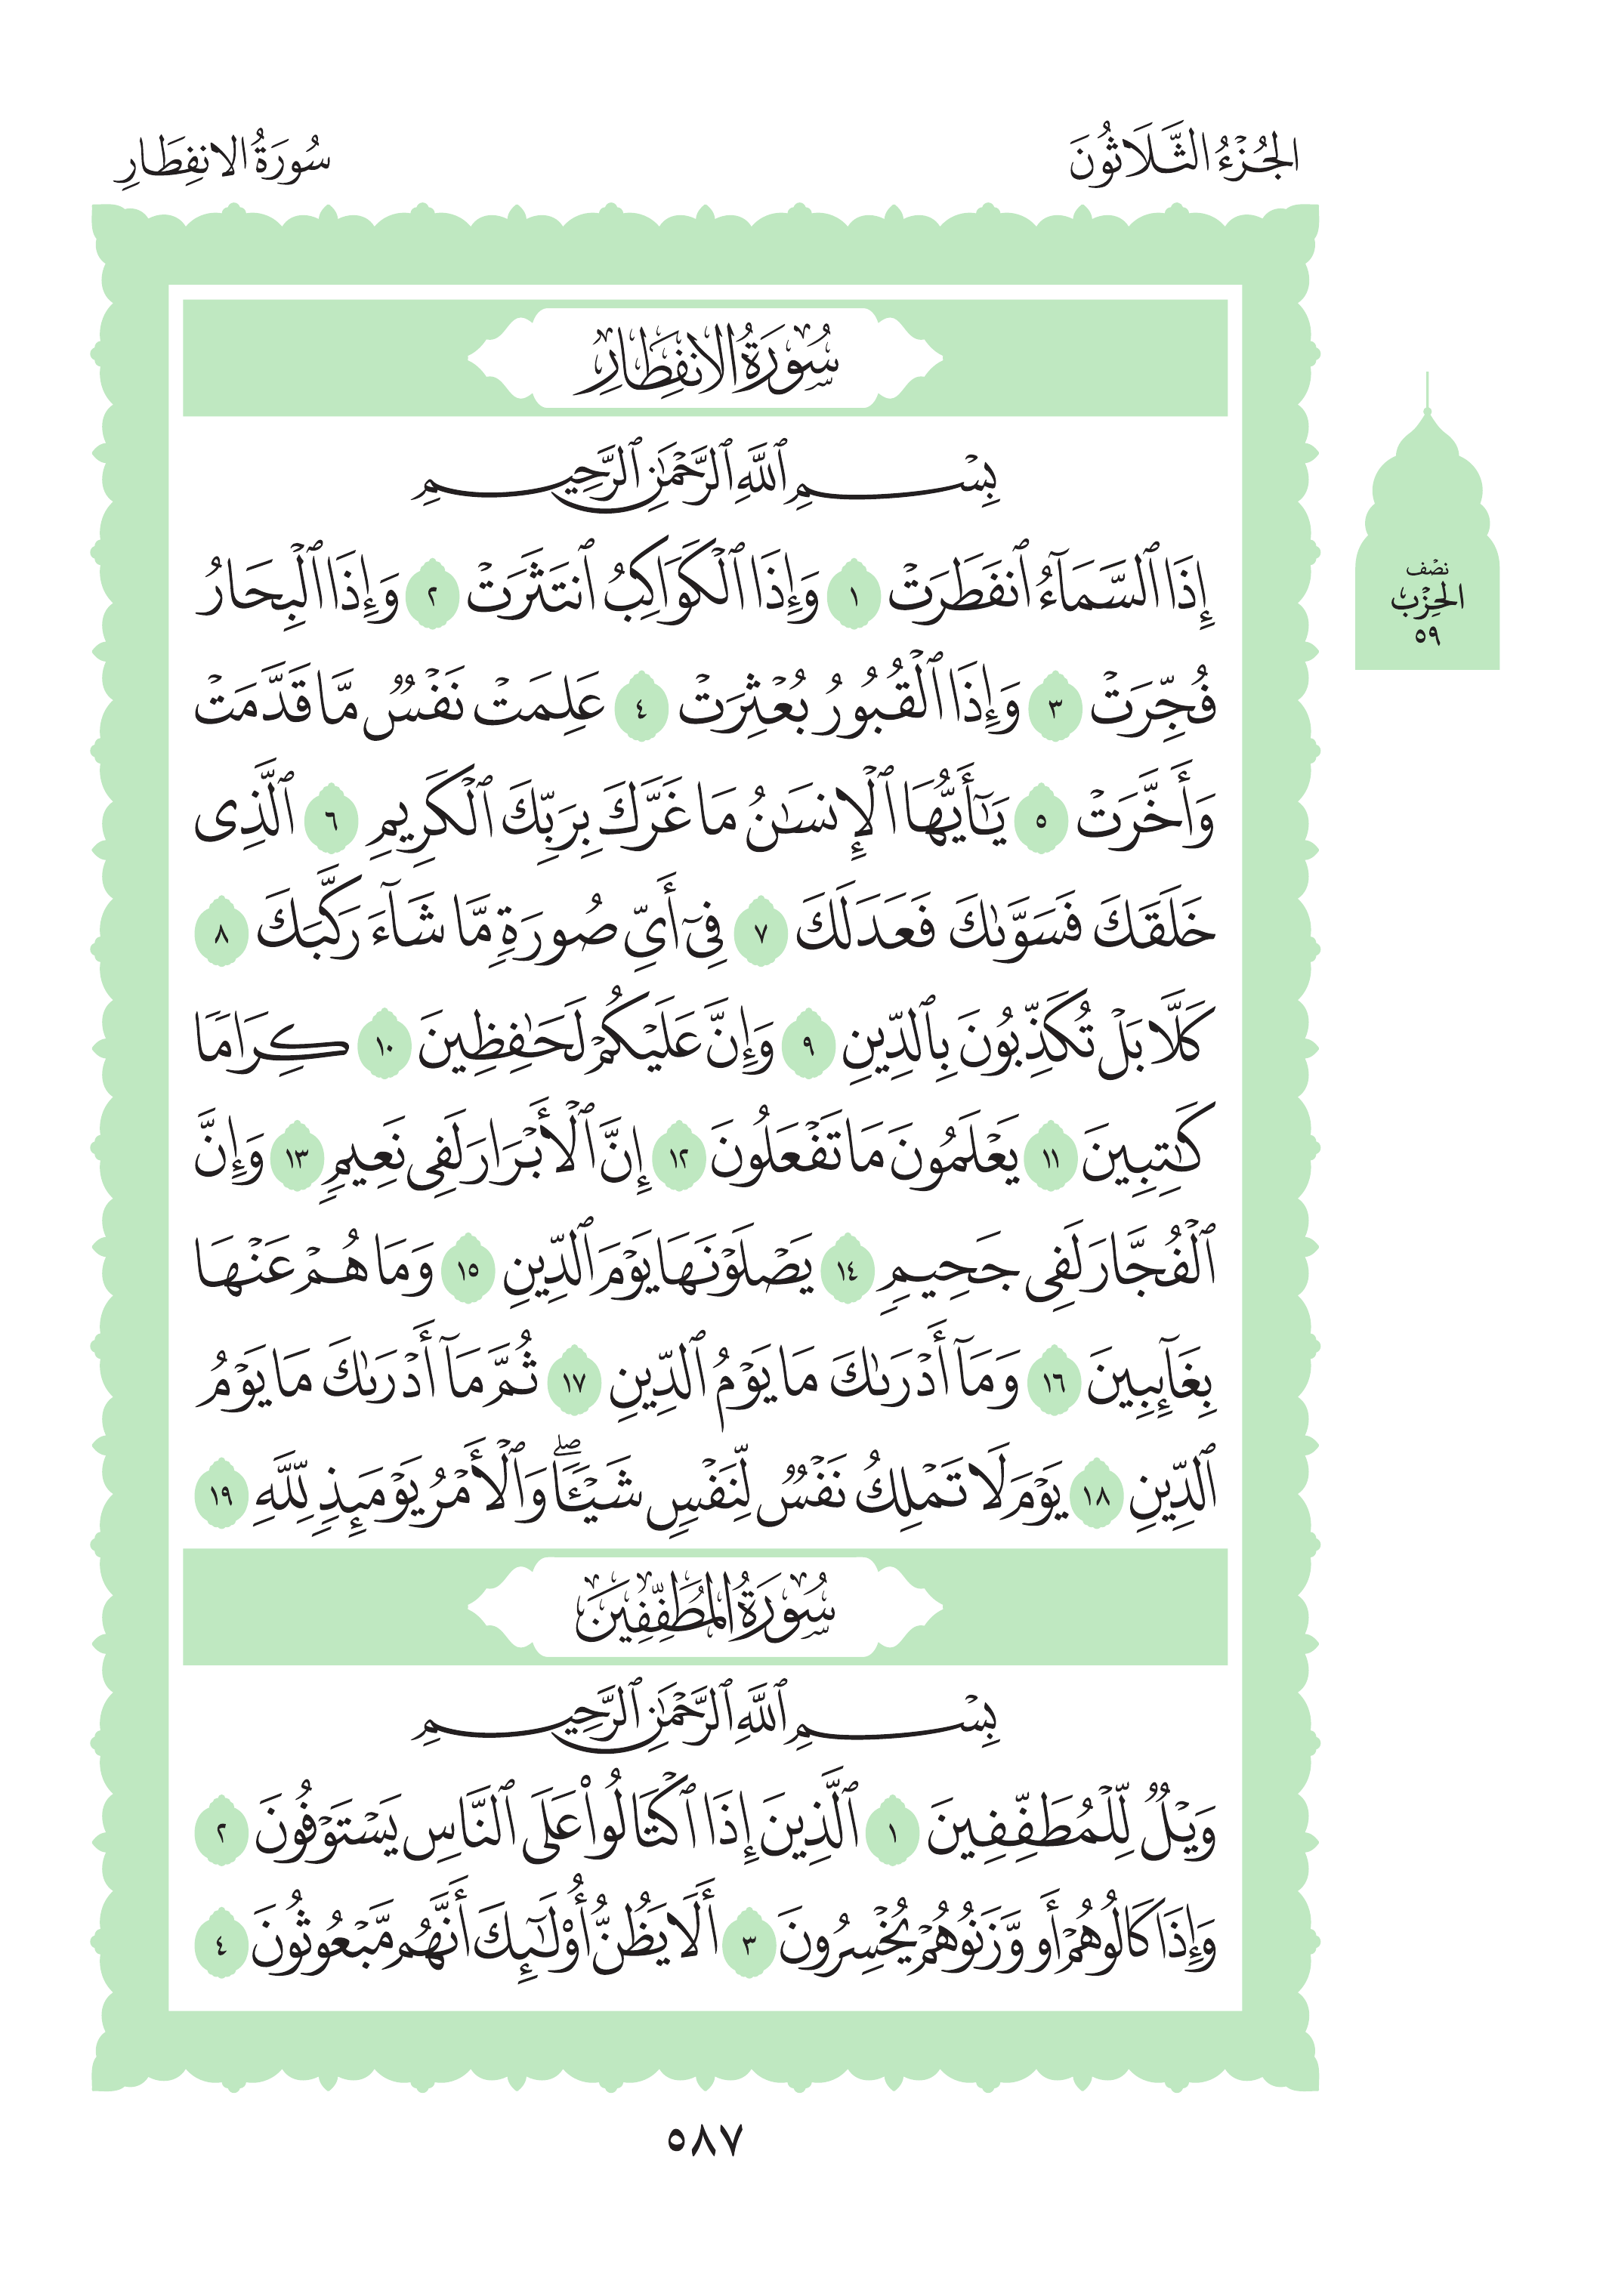 الجُزْءُ الثَّلَاثُونَ
سُورَةُ الانفِطَارِ
سُورَةُ الانفِطَارِ
بِسْمِ ٱللَّهِ ٱلرَّحْمَٰنِ ٱلرَّحِيمِ
إِذَا ٱلسَّمَآءُ ٱنفَطَرَتْ ١ وَإِذَا ٱلْكَوَاكِبُ ٱنتَثَرَتْ ٢ وَإِذَا ٱلْبِحَارُ
فُجِّرَتْ ٣ وَإِذَا ٱلْقُبُورُ بُعْثِرَتْ ٤ عَلِمَتْ نَفْسٌ مَّا قَدَّمَتْ
وَأَخَّرَتْ ٥ يَٰٓأَيُّهَا ٱلْإِنسَٰنُ مَا غَرَّكَ بِرَبِّكَ ٱلْكَرِيمِ ٦ ٱلَّذِى
خَلَقَكَ فَسَوَّىٰكَ فَعَدَلَكَ ٧ فِىٓ أَىِّ صُورَةٍ مَّا شَآءَ رَكَّبَكَ ٨
كَلَّا بَلْ تُكَذِّبُونَ بِٱلدِّينِ ٩ وَإِنَّ عَلَيْكُمْ لَحَٰفِظِينَ ١٠ كِرَامًا
كَٰتِبِينَ ١١ يَعْلَمُونَ مَا تَفْعَلُونَ ١٢ إِنَّ ٱلْأَبْرَارَ لَفِى نَعِيمٍ ١٣ وَإِنَّ
ٱلْفُجَّارَ لَفِى جَحِيمٍ ١٤ يَصْلَوْنَهَا يَوْمَ ٱلدِّينِ ١٥ وَمَا هُمْ عَنْهَا
بِغَآئِبِينَ ١٦ وَمَآ أَدْرَىٰكَ مَا يَوْمُ ٱلدِّينِ ١٧ ثُمَّ مَآ أَدْرَىٰكَ مَا يَوْمُ
ٱلدِّينِ ١٨ يَوْمَ لَا تَمْلِكُ نَفْسٌ لِّنَفْسٍ شَيْـًٔا ۖ وَٱلْأَمْرُ يَوْمَئِذٍ لِّلَّهِ ١٩
سُورَةُ المُطَفِّفِينَ
بِسْمِ ٱللَّهِ ٱلرَّحْمَٰنِ ٱلرَّحِيمِ
وَيْلٌ لِّلْمُطَفِّفِينَ ١ ٱلَّذِينَ إِذَا ٱكْتَالُوا۟ عَلَى ٱلنَّاسِ يَسْتَوْفُونَ ٢
وَإِذَا كَالُوهُمْ أَو وَّزَنُوهُمْ يُخْسِرُونَ ٣ أَلَا يَظُنُّ أُو۟لَٰٓئِكَ أَنَّهُم مَّبْعُوثُونَ ٤
نصْف
الحِزْب
٥٩
٥٨٧